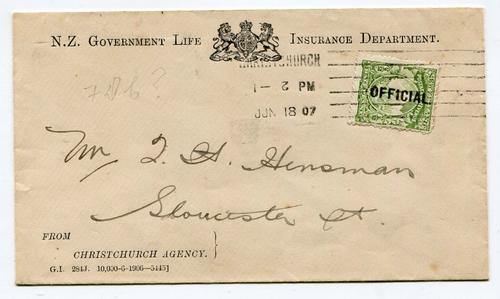 N.Z. GOVERNMENT LIFE INSURANCE DEPARTMENT.
CHRISTCHURCH
1 - 2 PM
JUN 18 07
OFFICIAL.
Mr J. H. Hensman
Gloucester St.
FROM
CHRISTCHURCH AGENCY.
G.I. 284J. 10,000-6-1906-5445]